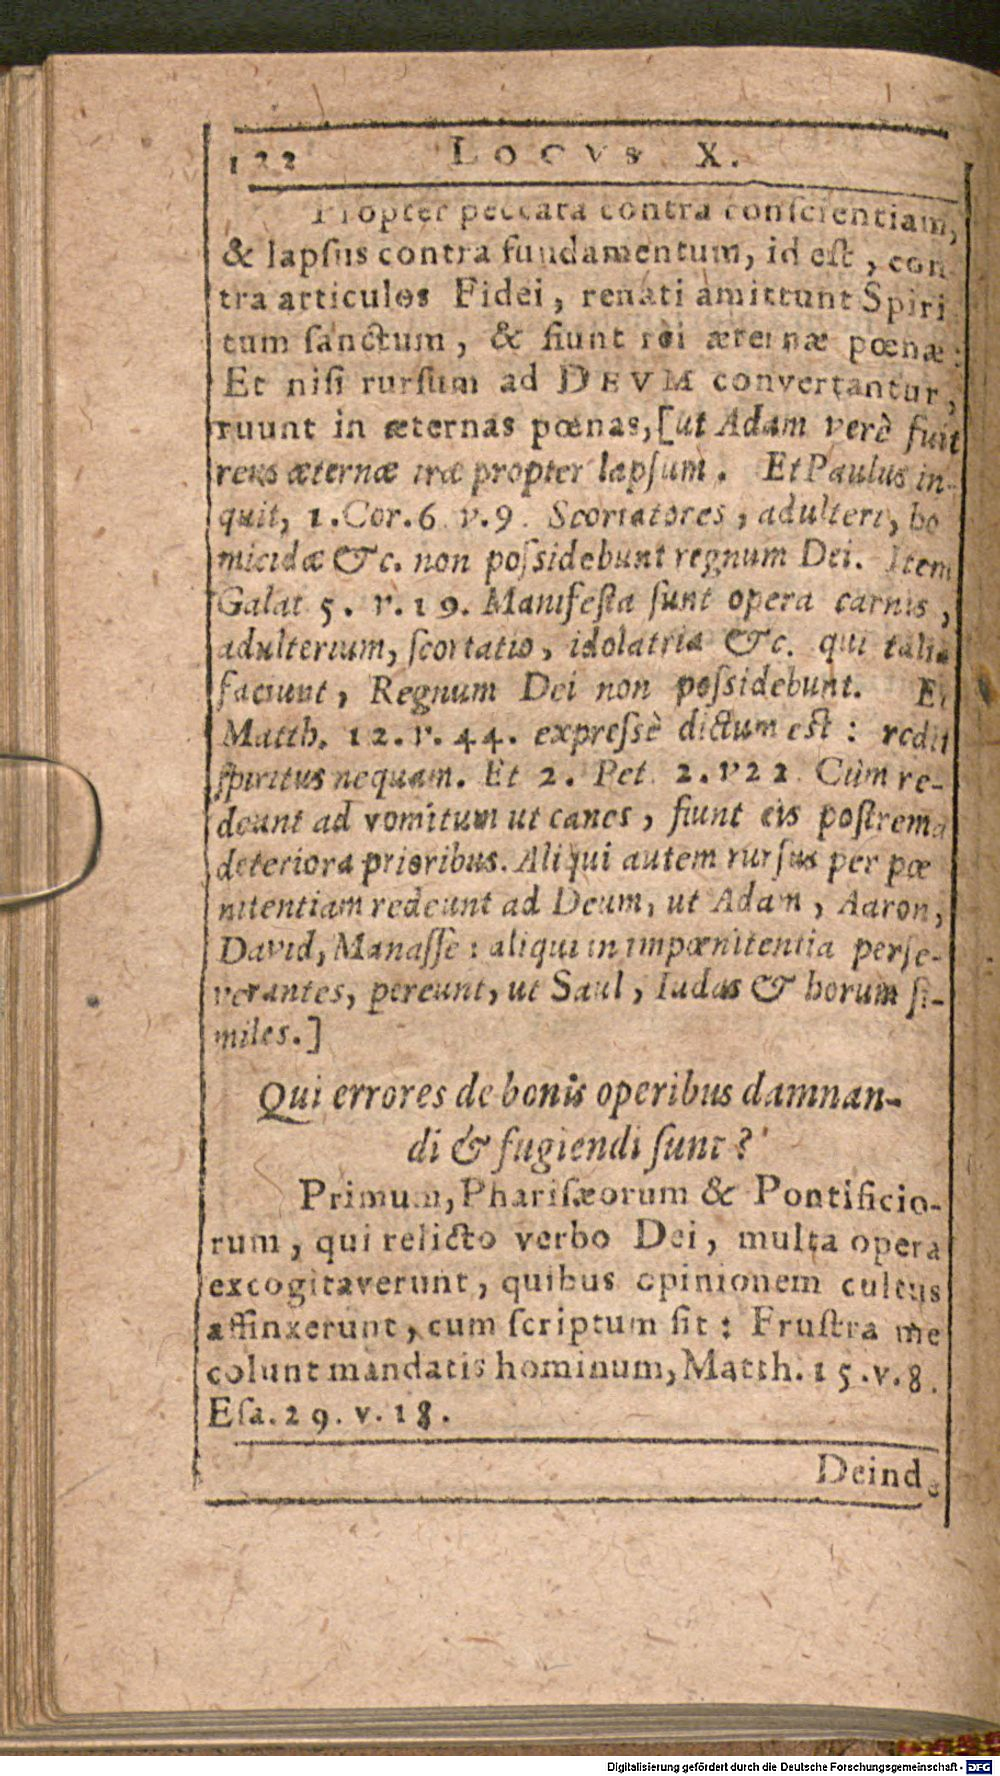 122 LOCVS X.
Propter peccata contra conscientiam,
& lapſus contra fundamentum, id eſt, con
tra articulos Fidei, renati amittunt Spiri
tum ſanctum, & fiunt rei æternæ pœnæ:
Et niſi rurſum ad DEVM convertantur,
ruunt in æternas pœnas, [ut Adam verè fuit
reus æternæ iræ propter lapſum. Et Paulus in-
quit, 1. Cor. 6 v. 9. Scortatores, adulteri, ho
micidæ &c. non poſsidebunt regnum Dei. Item
Galat 5. v. 19. Manifeſta ſunt opera carnis,
adulterium, ſcortatio, idolatria &c. qui talia
faciunt, Regnum Dei non poſsidebunt. Et
Matth. 12. v. 44. expreſsè dictum eſt: redit
ſpiritus nequam. Et 2. Pet 2. v 22 Cùm re-
deunt ad vomitum ut canes, fiunt eis poſtrema
deteriora prioribus. Aliqui autem rurſus per pœ
nitentiam redeunt ad Deum, ut Adam, Aaron,
David, Manaſſe: aliqui in impœnitentia perſe-
verantes, pereunt, ut Saul, Iudas & horum ſi-
miles.]
Qui errores de bonis operibus damnan-
di & fugiendi ſunt?
Primum, Phariſæorum & Pontificio-
rum, qui relicto verbo Dei, multa opera
excogitaverunt, quibus opinionem cultus
affinxerunt, cum ſcriptum ſit: Fruſtra me
colunt mandatis hominum, Matth. 15. v. 8.
Eſa. 29. v. 18.
Deinde
Digitalisierung gefördert durch die Deutsche Forschungsgemeinschaft - DFG